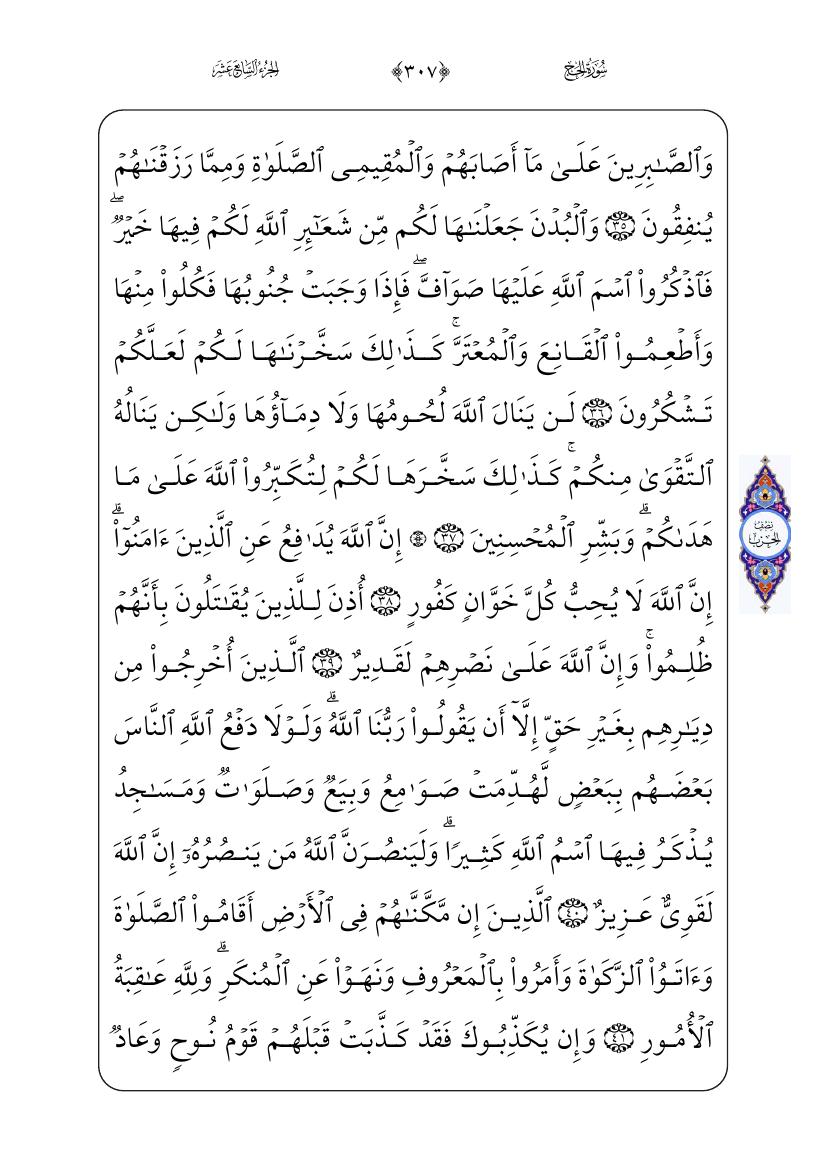 سُورَةُ الحَجّ
﴿٣٠٧﴾
الجُزءُ السَّابِعَ عَشَر
وَٱلصَّـٰبِرِينَ عَلَىٰ مَآ أَصَابَهُمۡ وَٱلۡمُقِيمِى ٱلصَّلَوٰةِ وَمِمَّا رَزَقۡنَـٰهُمۡ
يُنفِقُونَ ٣٥ وَٱلۡبُدۡنَ جَعَلۡنَـٰهَا لَكُم مِّن شَعَـٰٓئِرِ ٱللَّهِ لَكُمۡ فِيهَا خَيۡرٌۖ
فَٱذۡكُرُوا۟ ٱسۡمَ ٱللَّهِ عَلَيۡهَا صَوَآفَّۖ فَإِذَا وَجَبَتۡ جُنُوبُهَا فَكُلُوا۟ مِنۡهَا
وَأَطۡعِمُوا۟ ٱلۡقَانِعَ وَٱلۡمُعۡتَرَّۚ كَذَٰلِكَ سَخَّرۡنَـٰهَا لَكُمۡ لَعَلَّكُمۡ
تَشۡكُرُونَ ٣٦ لَن يَنَالَ ٱللَّهَ لُحُومُهَا وَلَا دِمَآؤُهَا وَلَـٰكِن يَنَالُهُ
ٱلتَّقۡوَىٰ مِنكُمۡۚ كَذَٰلِكَ سَخَّرَهَا لَكُمۡ لِتُكَبِّرُوا۟ ٱللَّهَ عَلَىٰ مَا
هَدَىٰكُمۡۗ وَبَشِّرِ ٱلۡمُحۡسِنِينَ ٣٧ ۞ إِنَّ ٱللَّهَ يُدَٰفِعُ عَنِ ٱلَّذِينَ ءَامَنُوٓا۟ۗ
إِنَّ ٱللَّهَ لَا يُحِبُّ كُلَّ خَوَّانٍ كَفُورٍ ٣٨ أُذِنَ لِلَّذِينَ يُقَـٰتَلُونَ بِأَنَّهُمۡ
ظُلِمُوا۟ۚ وَإِنَّ ٱللَّهَ عَلَىٰ نَصۡرِهِمۡ لَقَدِيرٌ ٣٩ ٱلَّذِينَ أُخۡرِجُوا۟ مِن
دِيَـٰرِهِم بِغَيۡرِ حَقٍّ إِلَّآ أَن يَقُولُوا۟ رَبُّنَا ٱللَّهُۗ وَلَوۡلَا دَفۡعُ ٱللَّهِ ٱلنَّاسَ
بَعۡضَهُم بِبَعۡضٍ لَّهُدِّمَتۡ صَوَٰمِعُ وَبِيَعٌ وَصَلَوَٰتٌ وَمَسَـٰجِدُ
يُذۡكَرُ فِيهَا ٱسۡمُ ٱللَّهِ كَثِيرًاۗ وَلَيَنصُرَنَّ ٱللَّهُ مَن يَنصُرُهُۥٓ إِنَّ ٱللَّهَ
لَقَوِىٌّ عَزِيزٌ ٤٠ ٱلَّذِينَ إِن مَّكَّنَّـٰهُمۡ فِى ٱلۡأَرۡضِ أَقَامُوا۟ ٱلصَّلَوٰةَ
وَءَاتَوُا۟ ٱلزَّكَوٰةَ وَأَمَرُوا۟ بِٱلۡمَعۡرُوفِ وَنَهَوۡا۟ عَنِ ٱلۡمُنكَرِۗ وَلِلَّهِ عَـٰقِبَةُ
ٱلۡأُمُورِ ٤١ وَإِن يُكَذِّبُوكَ فَقَدۡ كَذَّبَتۡ قَبۡلَهُمۡ قَوۡمُ نُوحٍ وَعَادٌ
نِصْفُ
الحِزبْ